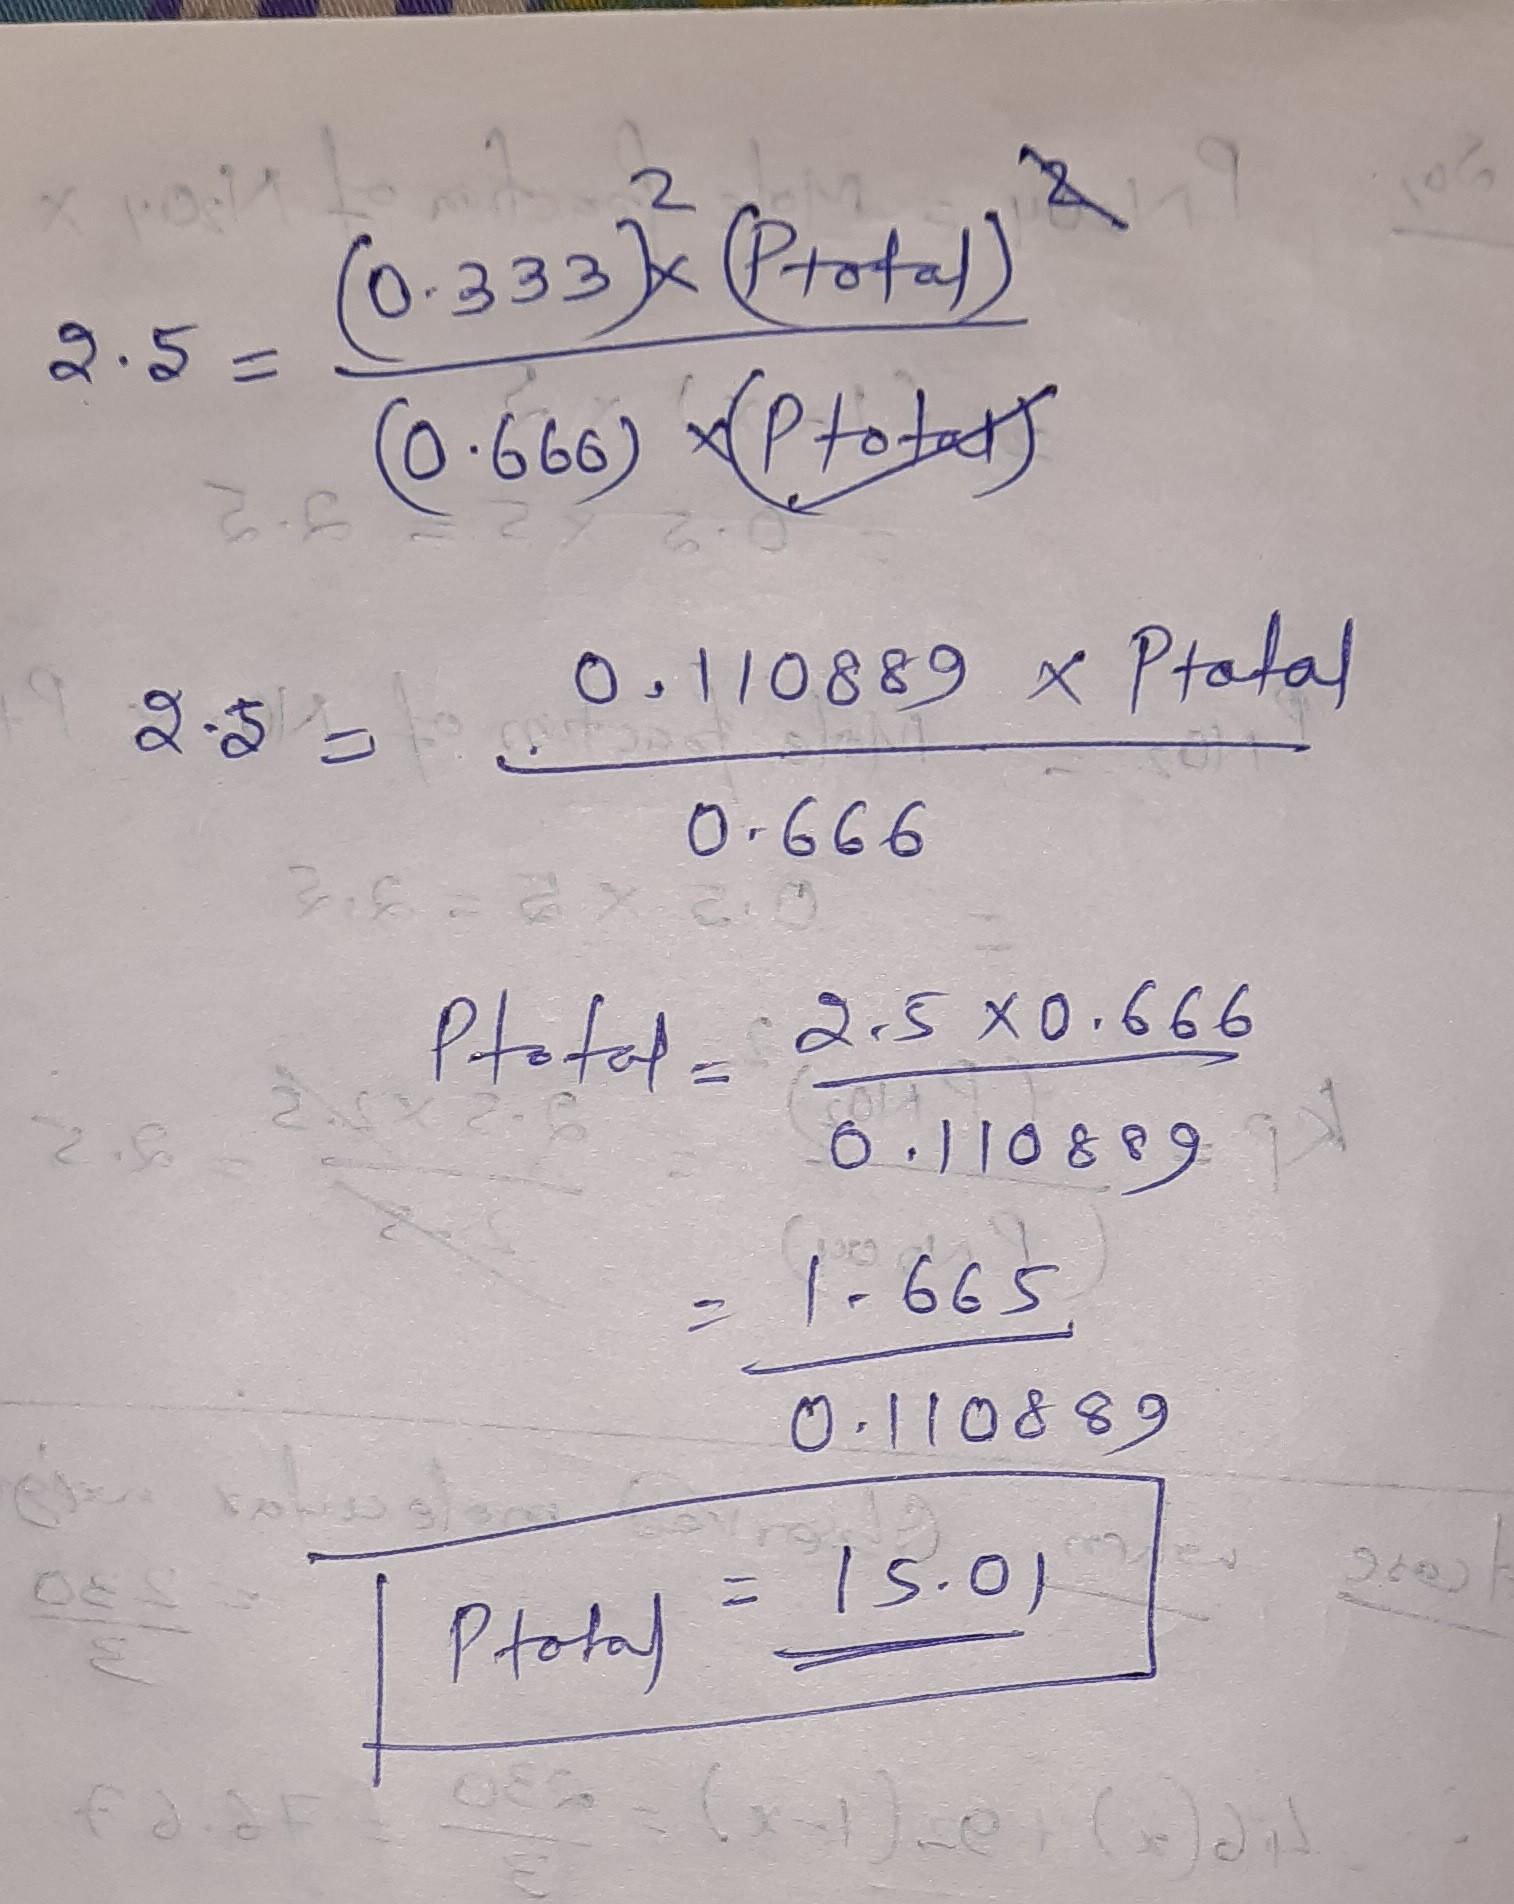 2.5 = (0.333)² × (Ptotal)² / (0.666) × (Ptotal)
2.5 = 0.110889 × Ptotal / 0.666
Ptotal = 2.5 × 0.666 / 0.110889
= 1.665 / 0.110889
Ptotal = 15.01